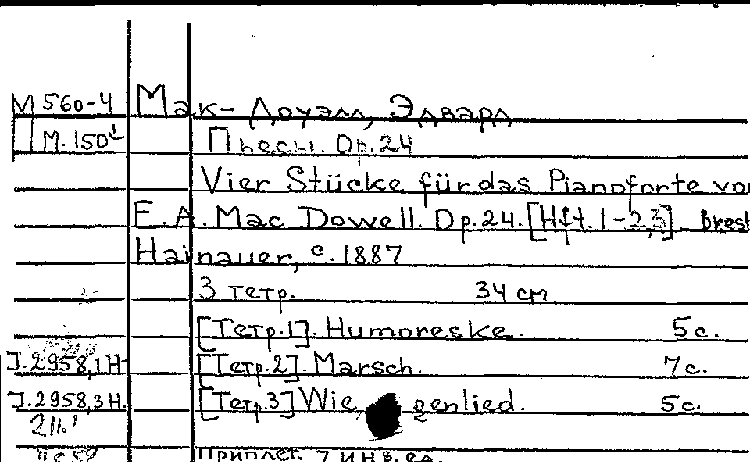 М 560-4 Мак-Доуэлл, Эдвард
М.150¹ Пьесы. Op.24
Vier Stücke für das Pianoforte vo
E.A. Mac Dowell. Op.24. [Hft. 1-2,3] Bresl
Hainauer, c. 1887
3 тетр. 34 см
[Тетр.1] Humoreske. 5 с.
J.2958,1 Н [Тетр.2] Marsch. 7 с.
J.2958,3 Н. [Тетр.3] Wie genlied. 5 с.
Приплет. 7 инв. ед.